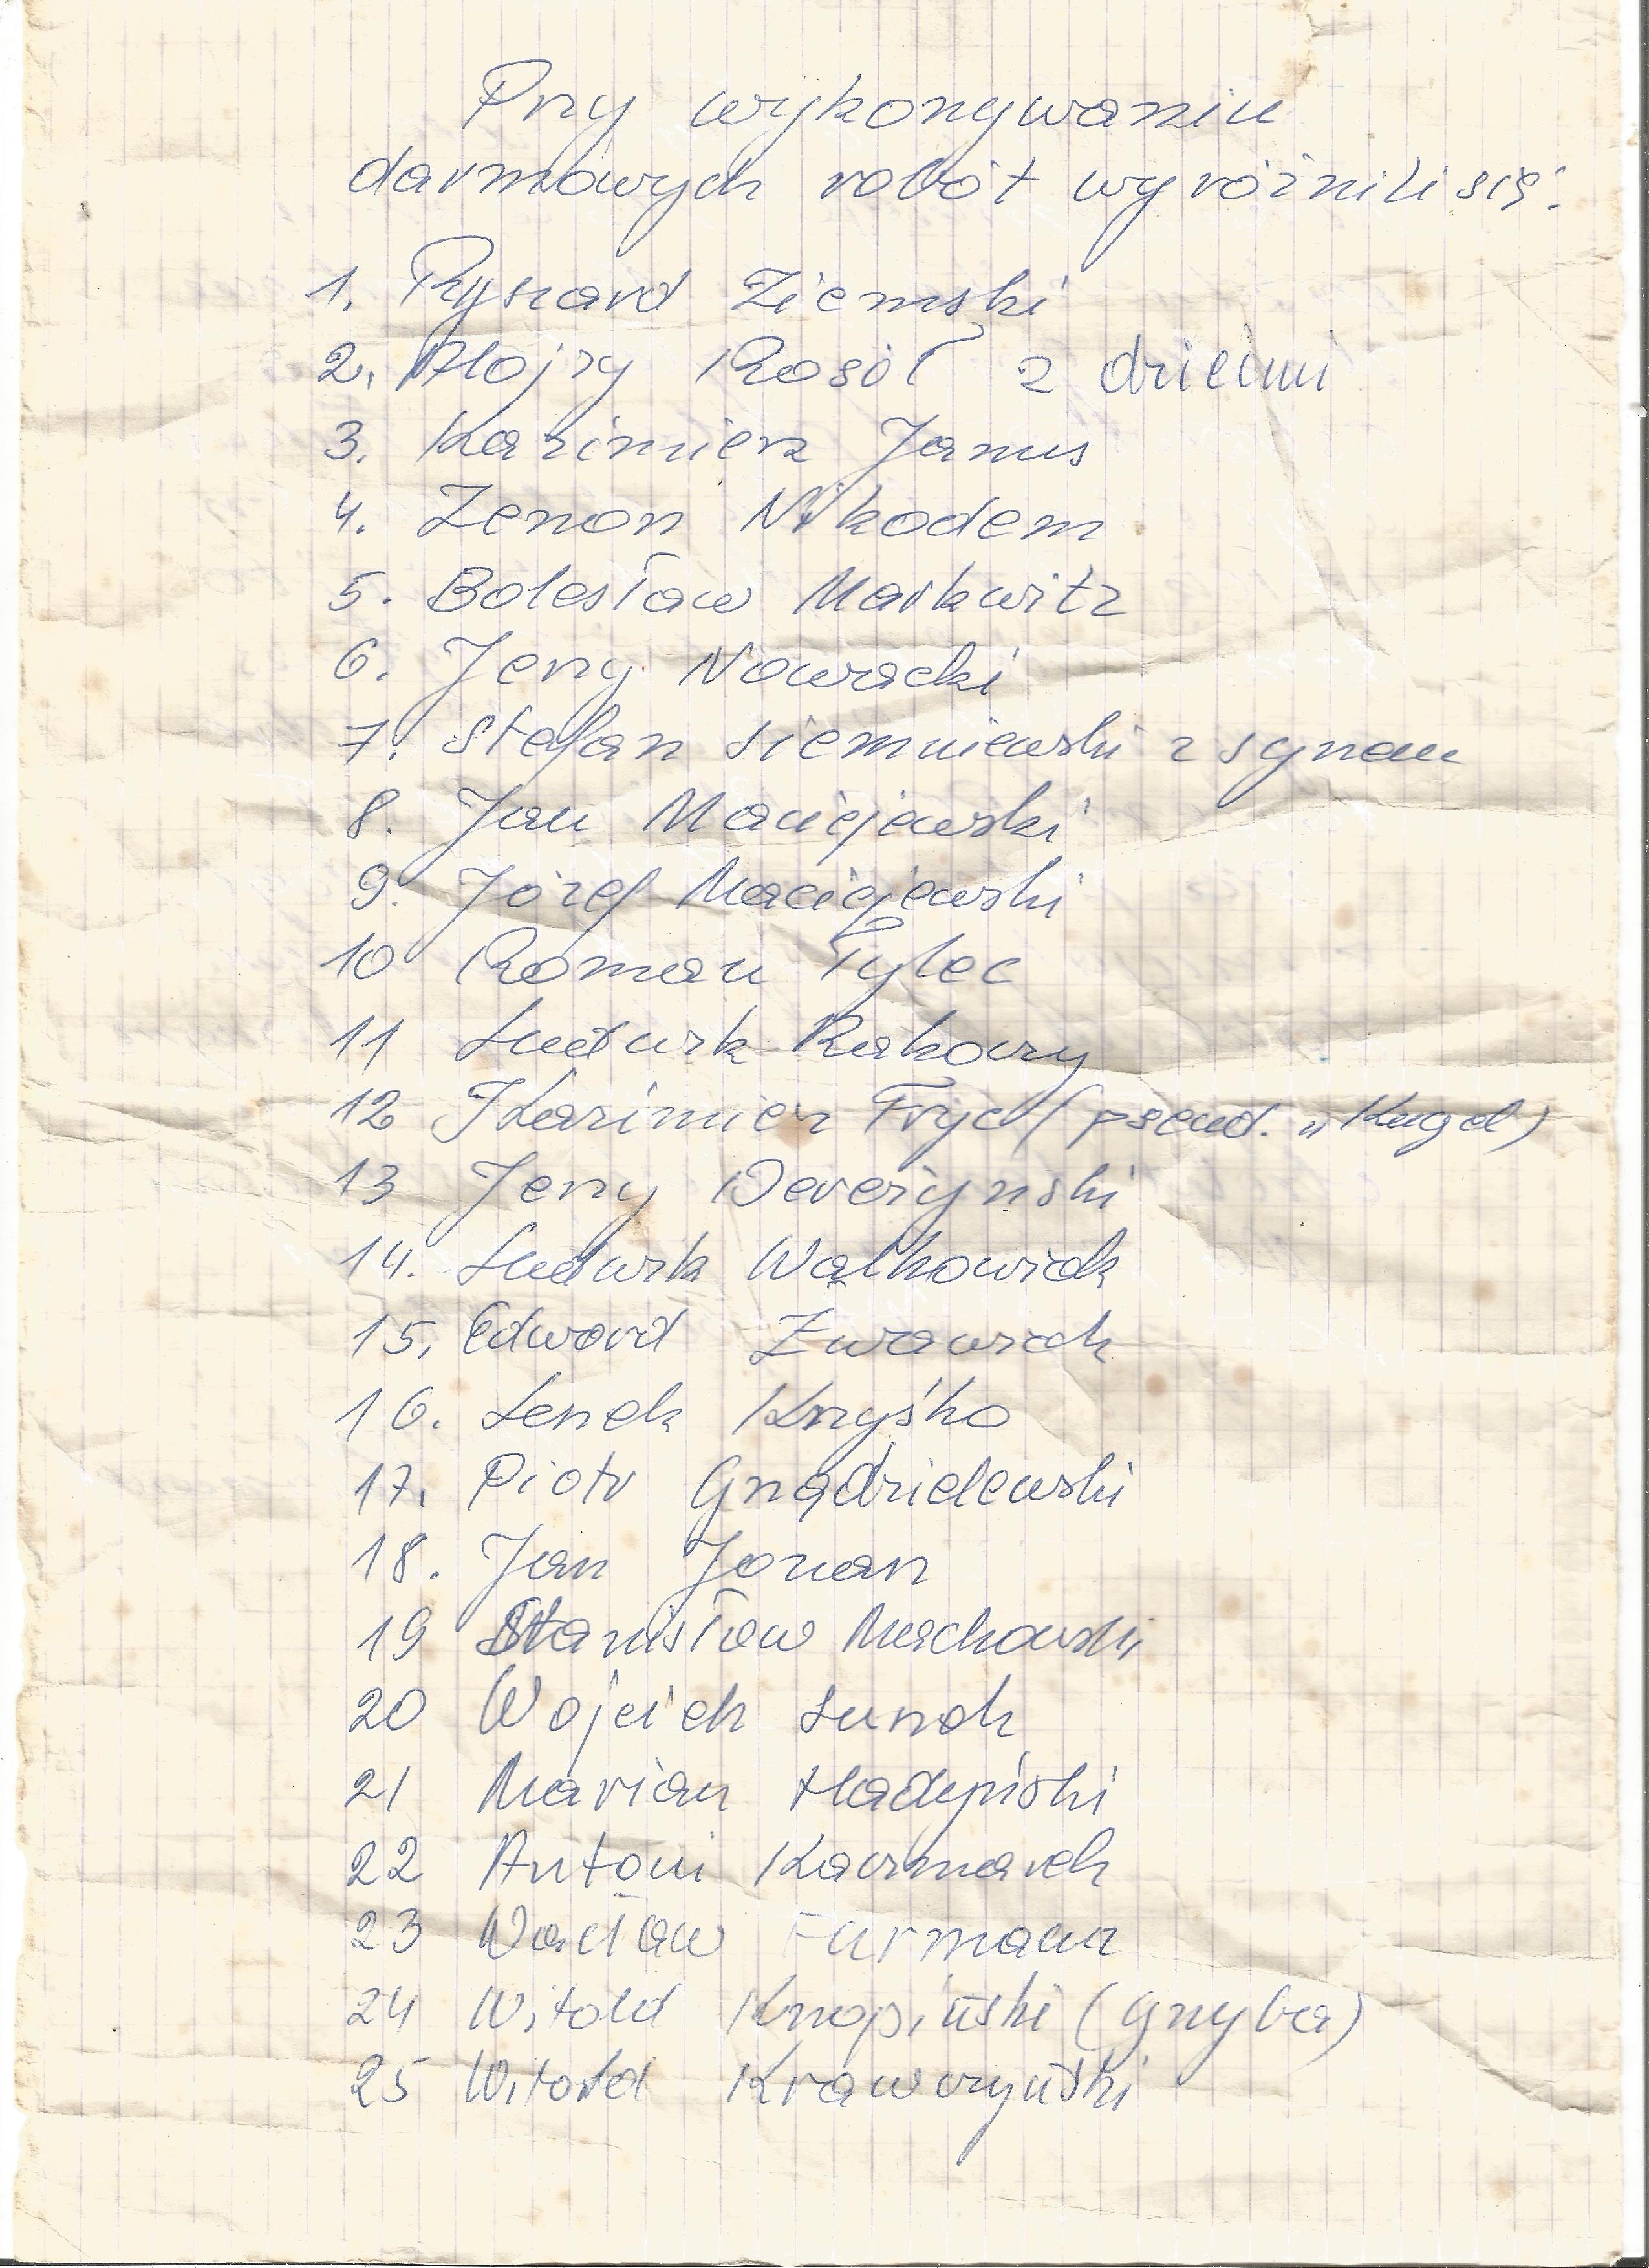 Przy wykonywaniu
darmowych robót wyróżnili się:
1. Ryszard Ziemski
2. Alojzy Rosół z dziećmi
3. Kazimierz Janus
4. Zenon Nikodem
5. Bolesław Markwitz
6. Jerzy Nowacki
7. Stefan Siemniewski z synem
8. Jan Maciejewski
9. Józef Maciejewski
10 Roman Tylec
11 Ludwik Rakowy
12 Kazimierz Fryd (pseud. „Kugel)
13 Jerzy
14. Ludwik Wałkowiak
15. Edward Żurawiak
16. Lenek Krzyśko
17. Piotr Gnądzielewski
18. Jan
19 Stanisław Muchowski
20 Wojciek
21 Marian Hadyński
22 Antoni Kaczmarek
23 Wacław Furmanz
24 Witold Knopiński (Gnyba)
25 Witold Krawczyński